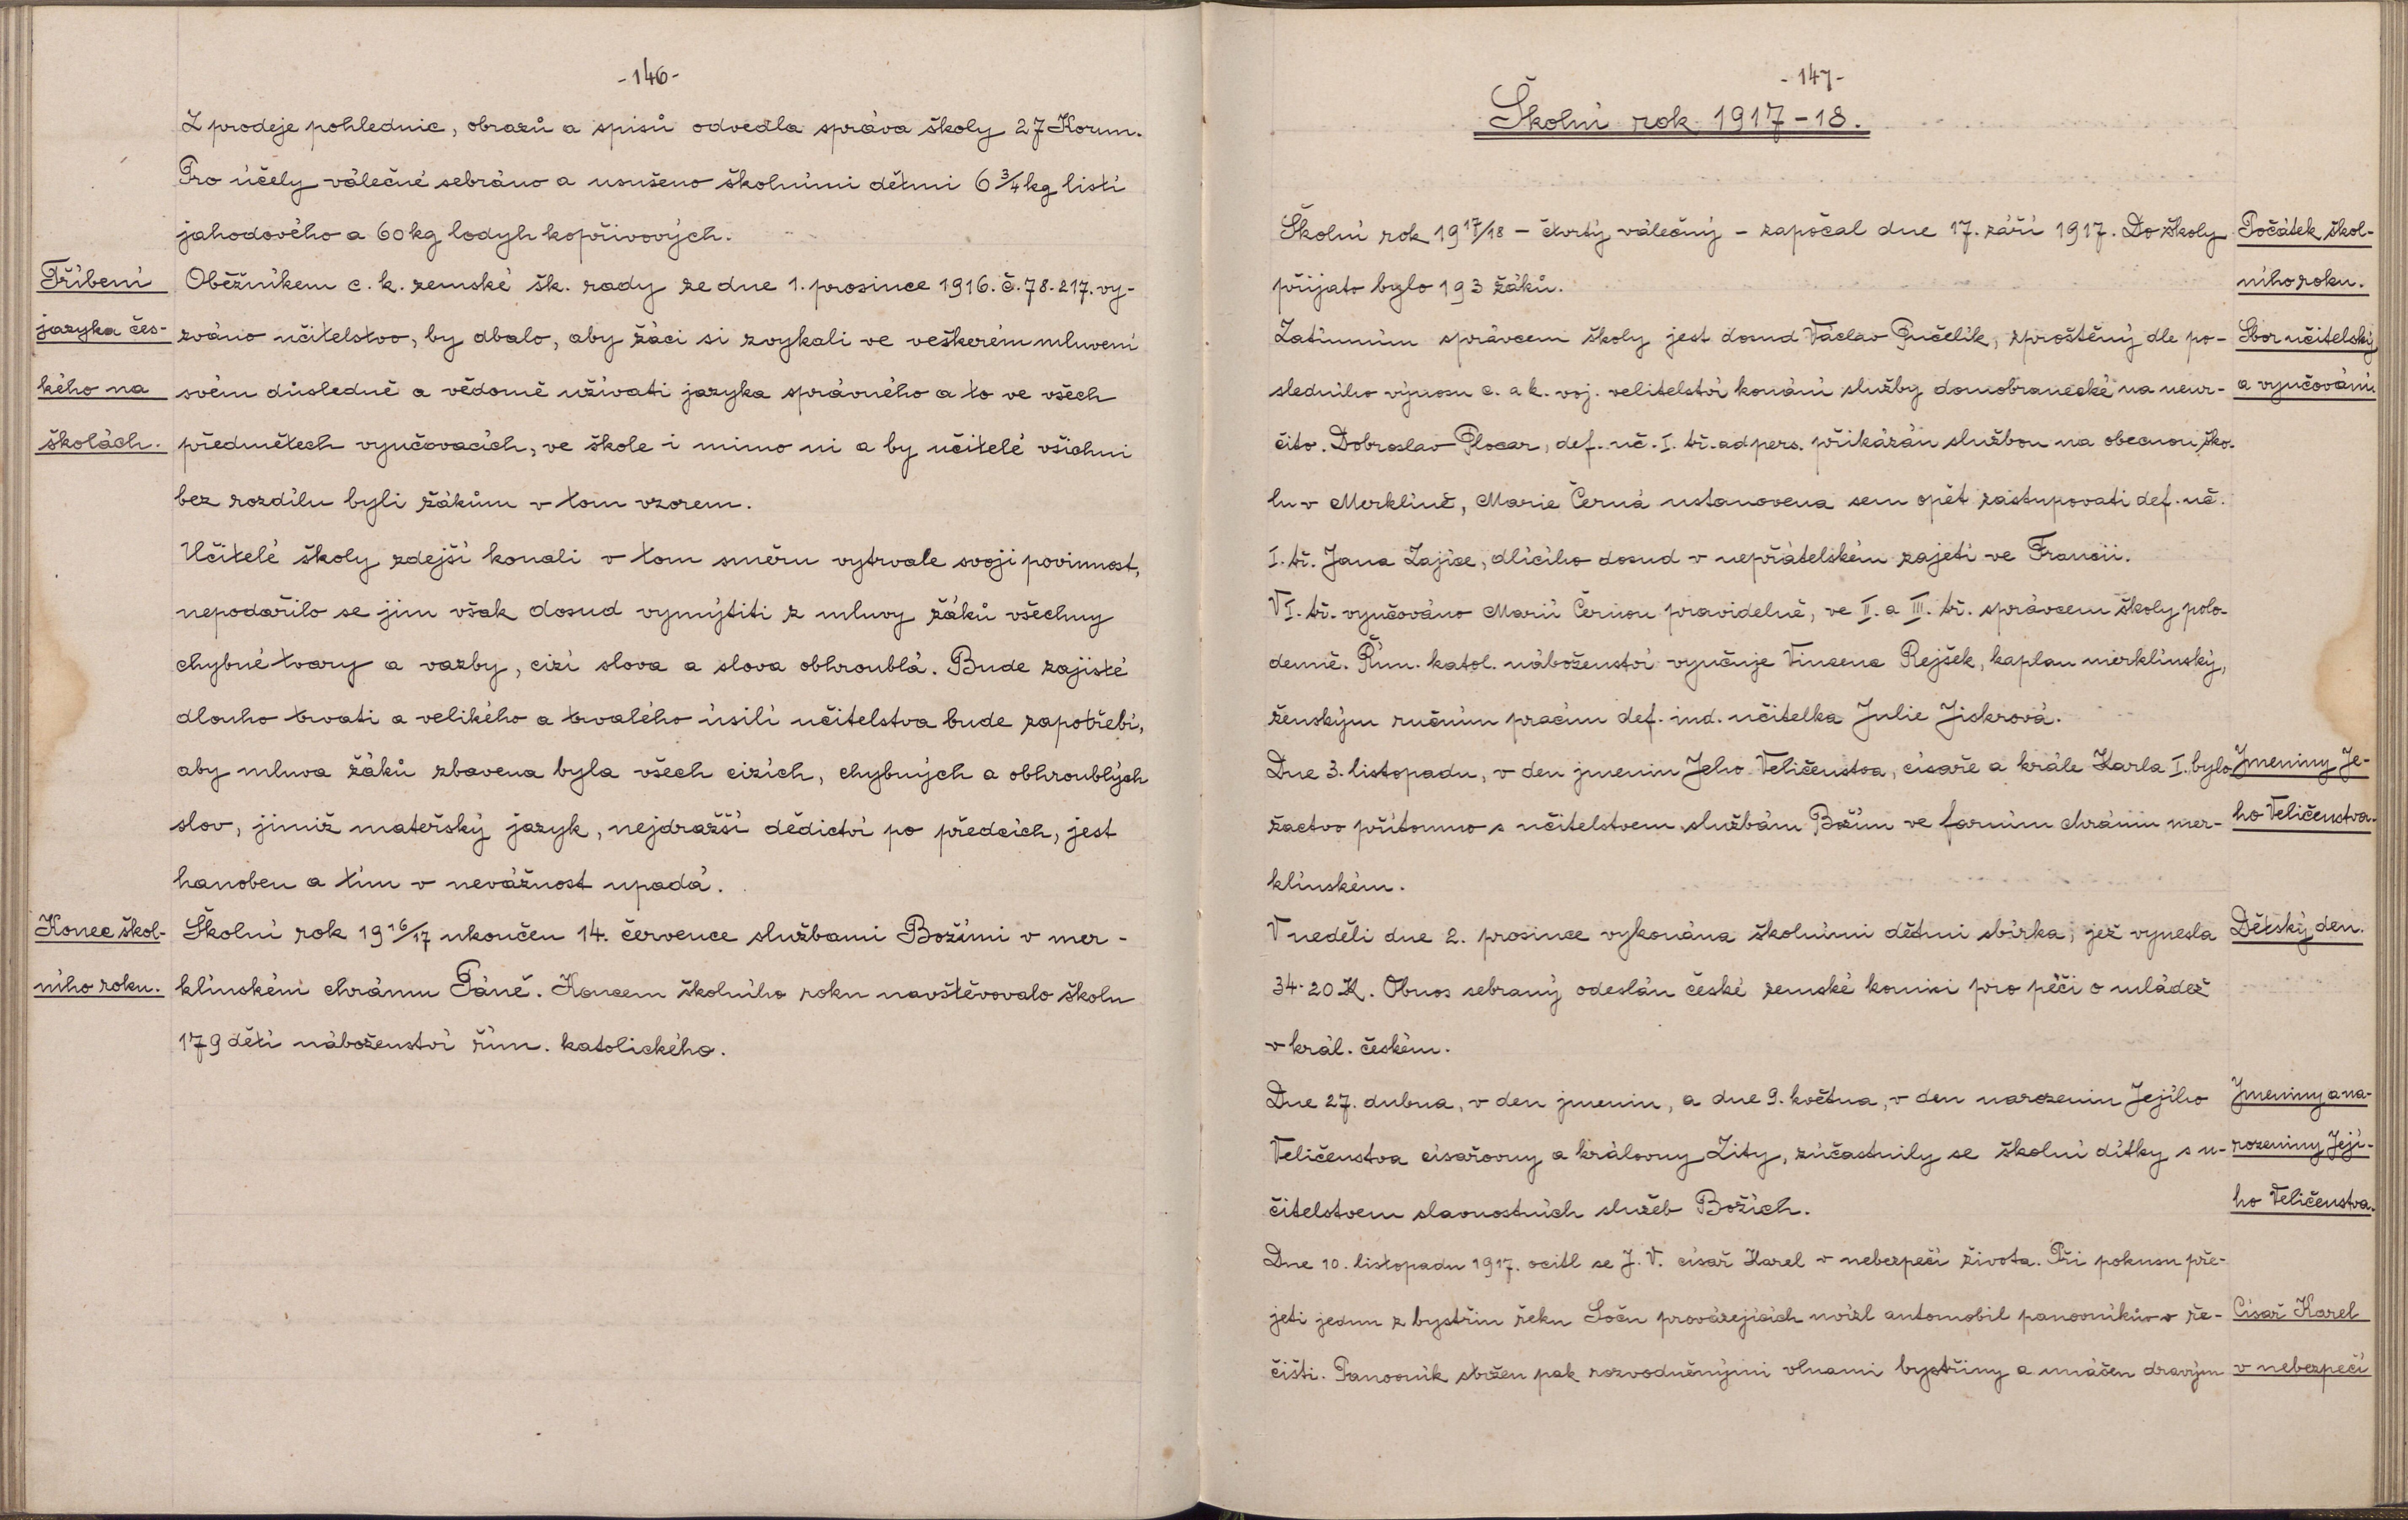 -146-
Z prodeje pohlednic, obrazů a spisů odvedla správa školy 27 Korun.
Pro účely válečné sebráno a usušeno školními dětmi 6 3/4 kg listí
jahodového a 60 kg lodyh kopřivových.
Tříbení
jazyka čes-
kého na
školách.
Oběžníkem c. k. zemské šk. rady ze dne 1. prosince 1916. č. 78.217. vy-
zváno učitelstvo, by dbalo, aby žáci si zvykali ve veškerém mluvení
svém důsledně a vědomě užívati jazyka správného a to ve všech
předmětech vyučovacích, ve škole i mimo ni a by učitelé všichni
bez rozdílu byli žákům v tom vzorem.
Učitelé školy zdejší konali v tom směru vytrvale svoji povinnost,
nepodařilo se jim však dosud vymýtiti z mluvy žáků všechny
chybné tvary a vazby, cizí slova a slova obhroublá. Bude zajisté
dlouho trvati a velikého a trvalého úsilí učitelstva bude zapotřebí,
aby mluva žáků zbavena byla všech cizích, chybných a obhroublých
slov, jimiž mateřský jazyk, nejdražší dědictví po předcích, jest
hanoben a tím v nevážnost upadá.
Konec škol-
ního roku.
Školní rok 1916/17 ukončen 14. července službami Božími v mer-
klínském chrámu Páně. Koncem školního roku navštěvovalo školu
179 dětí náboženství řím. katolického.
-147-
Školní rok 1917-18.
Školní rok 1917/18 - čtvrtý válečný - započal dne 17. září 1917. Do školy
přijato bylo 193 žáků.
Počátek škol-
ního roku.
Zatímním správcem školy jest dosud Václav Pučelík, zproštěný dle po-
sledního výnosu c. a k. voj. velitelství konání služby domobranecké na neur-
čito. Dobroslav Plocar, def. uč. I. tř. ad pers. přikázán službou na obecnou ško-
lu v Merklíně, Marie Černá ustanovena sem opět zastupovati def. uč.
I. tř. Jana Zajíce, dlícího dosud v nepřátelském zajetí ve Francii.
V I. tř. vyučováno Marií Černou pravidelně, ve II. a III. tř. správcem školy polo-
denně. Řím. katol. náboženství vyučuje Vincenc Rejšek, kaplan merklínský,
ženským ručním pracím def. ind. učitelka Julie Jiskrová.
Sbor učitelský
a vyučování.
Dne 3. listopadu, v den jmenin Jeho Veličenstva, císaře a krále Karla I. bylo
žactvo přítomno s učitelstvem službám Božím ve farním chrámu mer-
klínském.
Jmeniny Je-
ho Veličenstva.
V neděli dne 2. prosince vykonána školními dětmi sbírka, jež vynesla
34.20 K. Obnos sebraný odeslán české zemské komisi pro péči o mládež
v král. českém.
Dětský den.
Dne 27. dubna, v den jmenin, a dne 9. května, v den narozenin Jejího
Veličenstva císařovny a královny Zity, zúčastnily se školní dítky s u-
čitelstvem slavnostních služeb Božích.
Jmeniny a na-
rozeniny Její-
ho Veličenstva.
Dne 10. listopadu 1917. ocitl se J. V. císař Karel v nebezpečí života. Při pokusu pře-
jeti jednu z bystřin řeku Soču provázejících uvízl automobil panovníkův v ře-
čišti. Panovník stržen pak rozvodněnými vlnami bystřiny a unášen dravým
Císař Karel
v nebezpečí